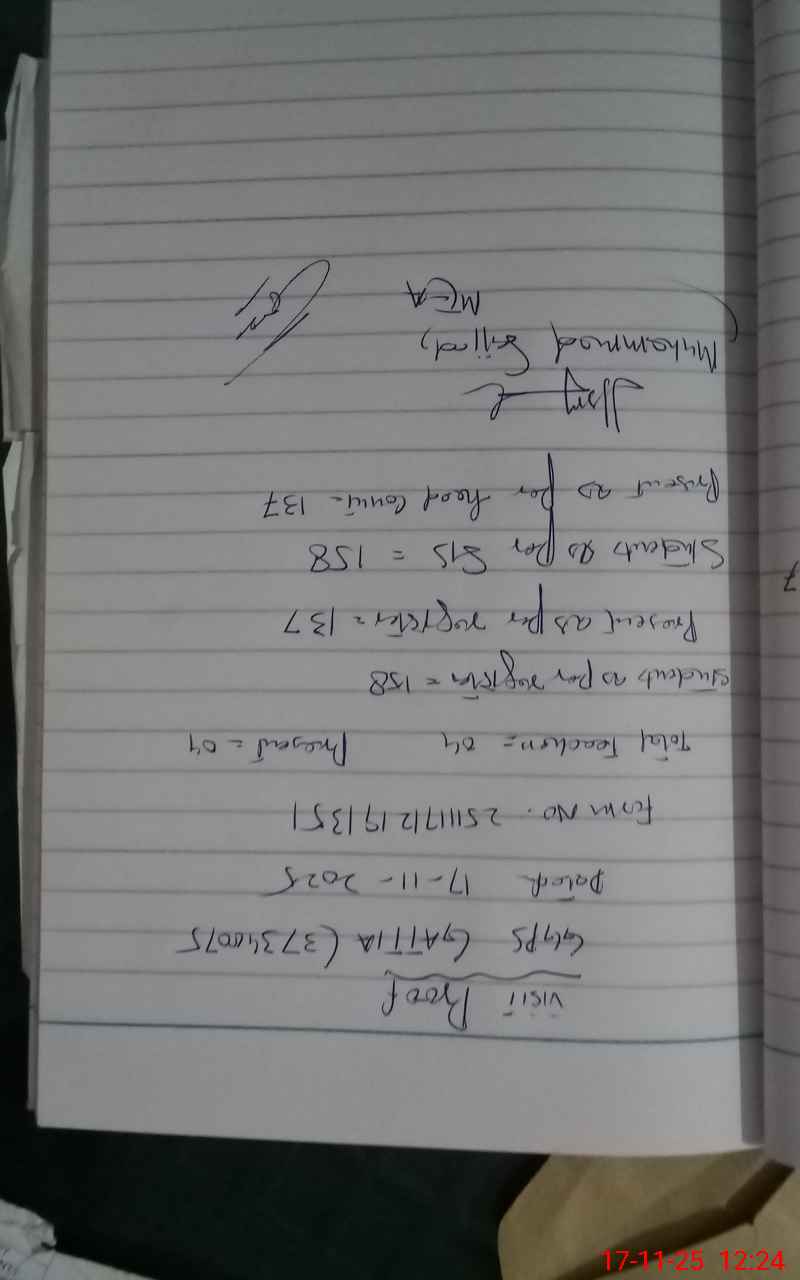 Visit Proof
GGPS GATTIA (37340075
Dated 17-11-2025
Form No. 25111712191351
Total Teacher = 04 Present = 04
Students as per register = 158
Present as per register = 137
Students as per SIS = 158
Present as per head Count = 137
Muhammad Sajjad,
MEA
7
17-11-25 12:24